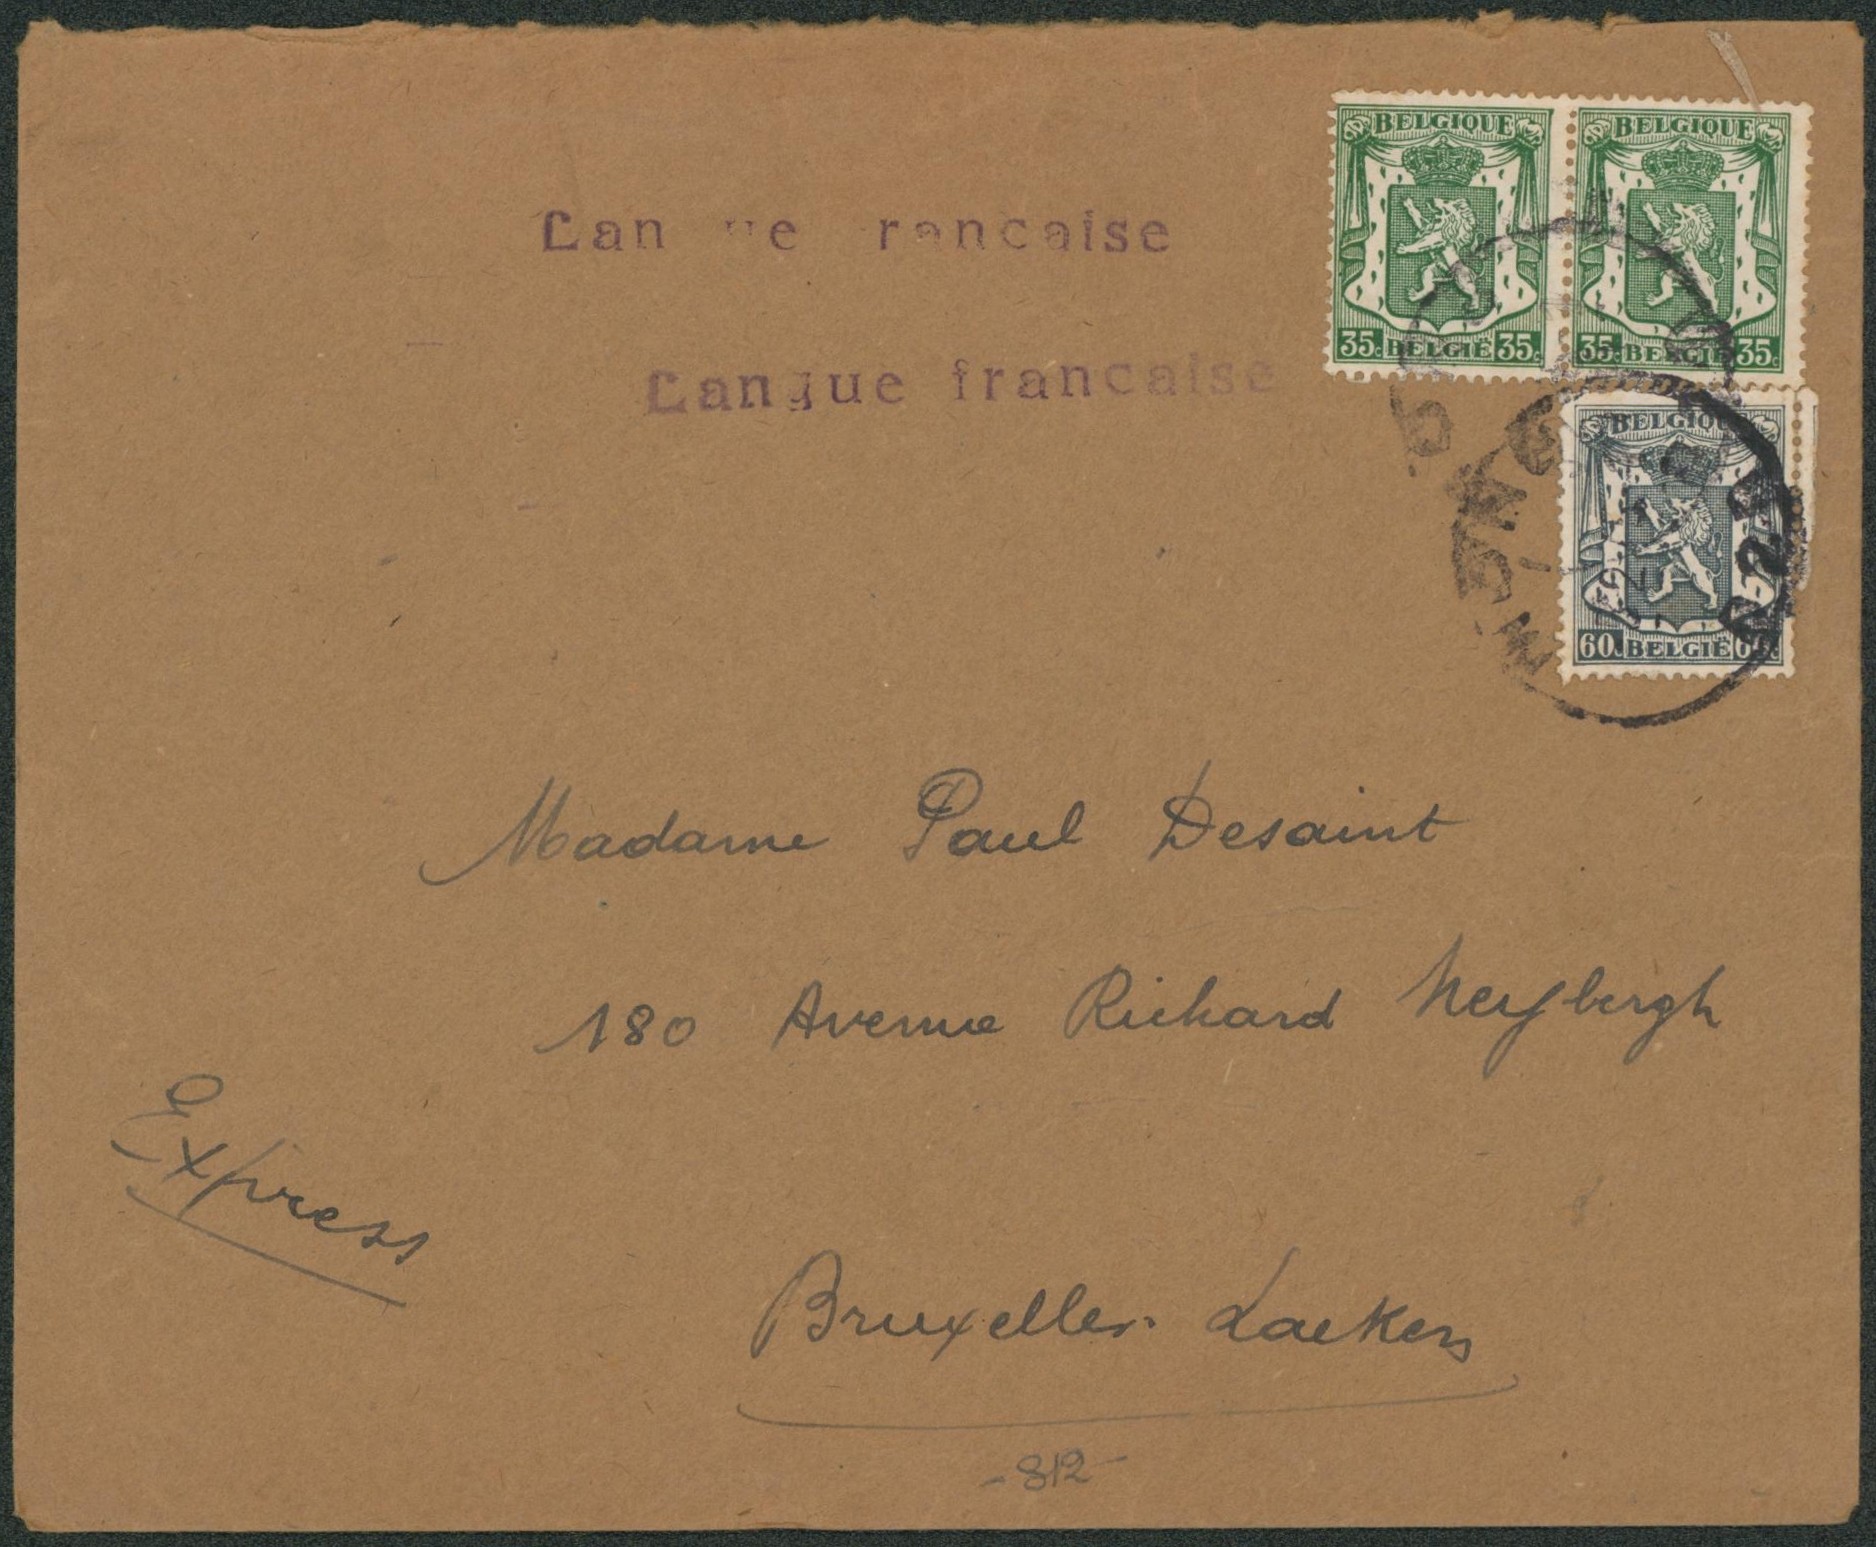 BELGIQUE BELGIQUE
35c BELGIË 35c 35c BELGIË 35c
BELGIQUE
60c BELGIË 60c
Lan ue rancaise
Langue francaise
Madame Paul Desaint
180 Avenue Richard Neybergh
Express
Bruxelles. Laeken
- 812 -